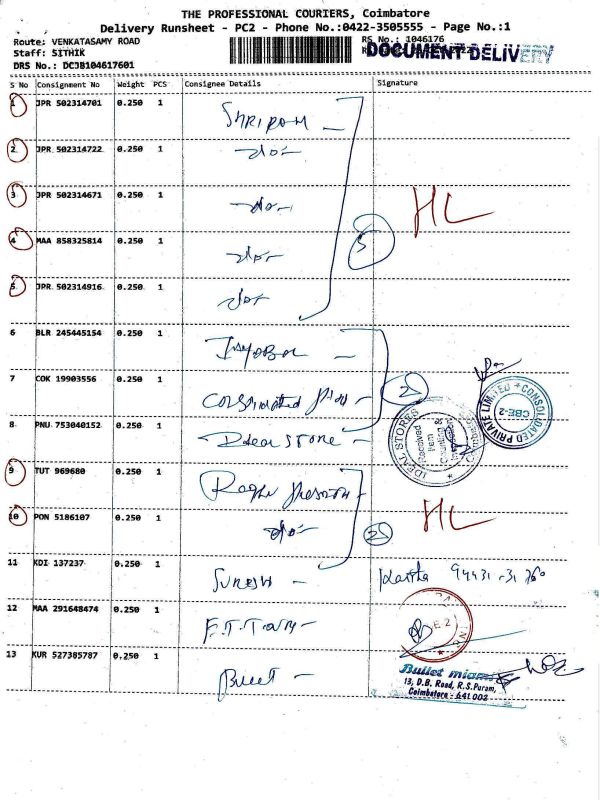 THE PROFESSIONAL COURIERS, Coimbatore
Delivery Runsheet - PC2 - Phone No.:0422-3505555 - Page No.:1
Route: VENKATASAMY ROAD
Staff: SITHIK
DRS No.: DCJB104617601
RS No.: 1046176
DOCUMENT DELIVERY
S No Consignment No Weight PCS Consignee Details Signature
1 JPR 502314701 0.250 1 SHRIRAM
2 JPR 502314722 0.250 1 -do-
3 JPR 502314671 0.250 1 -do-
HL
4 MAA 858325814 0.250 1 -do-
5
5 JPR 502314916 0.250 1 -do-
6 BLR 245445154 0.250 1
7 COK 19903556 0.250 1 Consolidated
2
CONSOLIDATED PRIVATE LIMITED
CBE-2
8 PNU 753040152 0.250 1 Ideal STORE
IDEAL STORES
Received
Item
Counting &
9 TUT 969680 0.250 1 Raghu
10 PON 5186107 0.250 1 -do-
2
HL
11 KDI 137237 0.250 1 SURESH
12 MAA 291648474 0.250 1
E.2
13 KUR 527385787 0.250 1 Bullet
Bullet
13, D.B. Road, R.S.Puram,
Coimbatore - 641 002